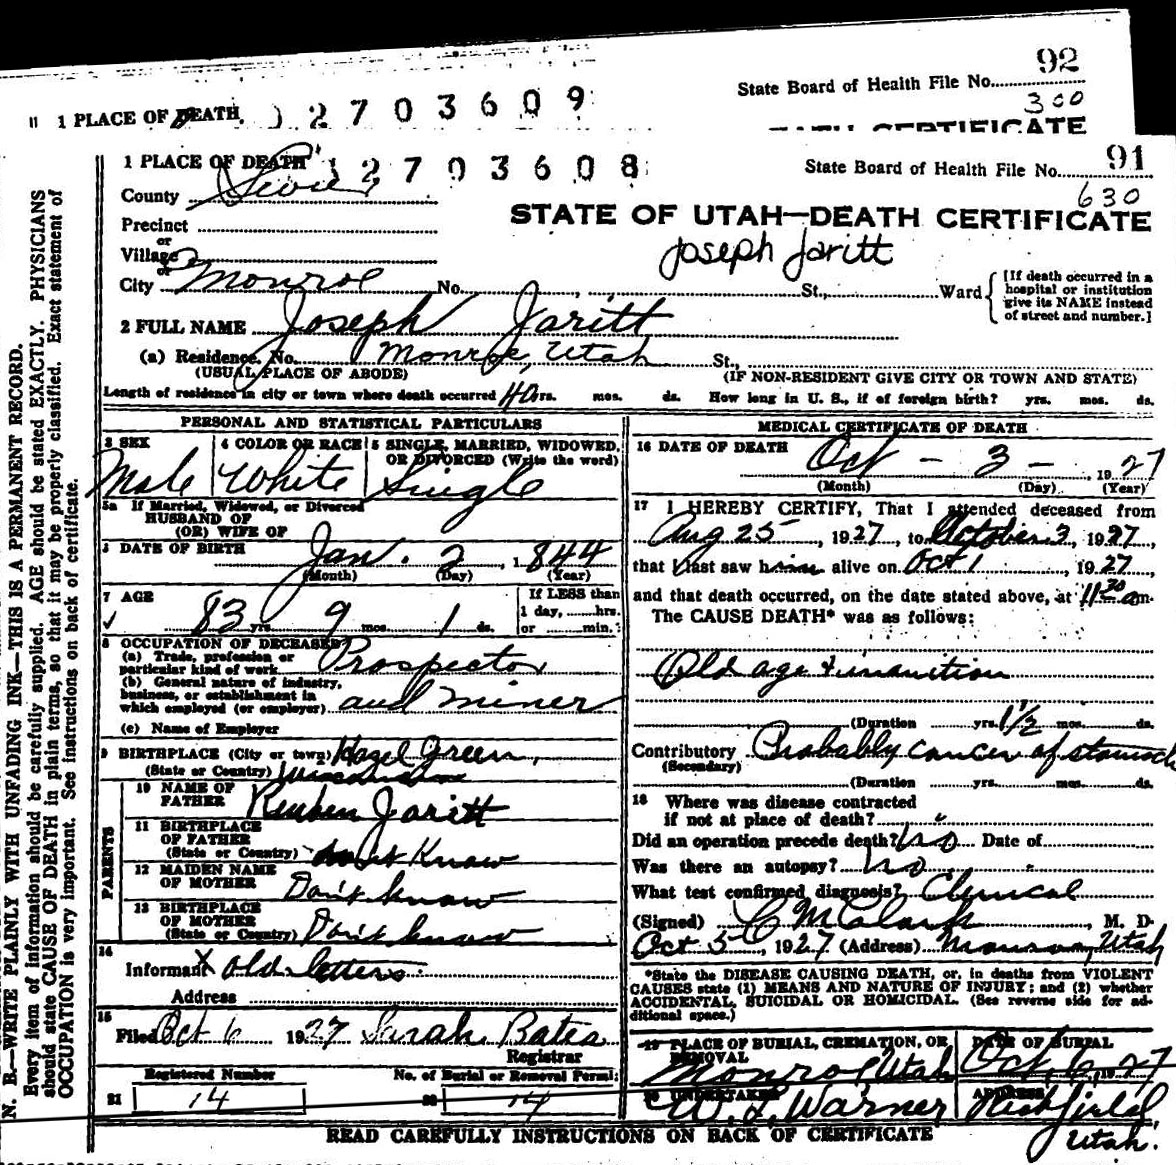 92
State Board of Health File No.
300
1 PLACE OF DEATH
2 7 0 3 6 0 9
DEATH CERTIFICATE
1 PLACE OF DEATH
1 2 7 0 3 6 0 8
State Board of Health File No. 91
630
County Sevier
STATE OF UTAH—DEATH CERTIFICATE
Precinct
or
Village
Joseph Jaritt
or
City Monroe No. St., Ward
[If death occurred in a
hospital or institution
give its NAME instead
of street and number.]
2 FULL NAME Joseph Jaritt
(a) Residence. No. Monroe, Utah St.,
(USUAL PLACE OF ABODE) (IF NON-RESIDENT GIVE CITY OR TOWN AND STATE)
Length of residence in city or town where death occurred 40 yrs. mos. ds. How long in U. S., if of foreign birth? yrs. mos. ds.
PERSONAL AND STATISTICAL PARTICULARS
3 SEX
Male
4 COLOR OR RACE
White
5 SINGLE, MARRIED, WIDOWED,
OR DIVORCED (Write the word)
Single
5a If Married, Widowed, or Divorced
HUSBAND OF
(OR) WIFE OF
DATE OF BIRTH
Jan. 2, 1844
(Month) (Day) (Year)
7 AGE
83 yrs. 9 mos. 1 ds.
If LESS than
1 day, hrs.
or min.
8 OCCUPATION OF DECEASED
(a) Trade, profession or
particular kind of work Prospector
(b) General nature of industry,
business, or establishment in
which employed (or employer) and miner
(c) Name of Employer
9 BIRTHPLACE (City or town) Hazel Green,
(State or Country) Wisconsin
PARENTS
10 NAME OF
FATHER Reuben Jaritt
11 BIRTHPLACE
OF FATHER
(State or Country) don't Know
12 MAIDEN NAME
OF MOTHER Don't know
13 BIRTHPLACE
OF MOTHER
(State or Country) Don't know
14
Informant X old letters
Address
15
Filed Oct 6 1927 Sarah Bates
Registrar
Registered Number No. of Burial or Removal Permit
21 14 22 14
MEDICAL CERTIFICATE OF DEATH
16 DATE OF DEATH Oct - 3 - 1927
(Month) (Day) (Year)
17 I HEREBY CERTIFY, That I attended deceased from
Aug 25, 1927, to October 3, 1927,
that I last saw him alive on Oct 1, 1927,
and that death occurred, on the date stated above, at 11 30 am.
The CAUSE DEATH* was as follows:
Old age & inanition
(Duration yrs. 1 1/2 mos. ds.
Contributory Probably cancer of stomach
(Secondary)
(Duration yrs. mos. ds.
18 Where was disease contracted
if not at place of death? "
Did an operation precede death? no Date of
Was there an autopsy? no
What test confirmed diagnosis? Clinical
(Signed) C M Clark, M. D.
Oct 5 1927 (Address) Monroe, Utah
*State the DISEASE CAUSING DEATH, or, in deaths from VIOLENT
CAUSES state (1) MEANS AND NATURE OF INJURY; and (2) whether
ACCIDENTAL, SUICIDAL OR HOMICIDAL. (See reverse side for ad-
ditional space.)
19 PLACE OF BURIAL, CREMATION, OR
REMOVAL
Monroe Utah
DATE OF BURIAL
Oct. 6, 1927
20 UNDERTAKER
W. L. Warner
ADDRESS
Richfield,
Utah.
READ CAREFULLY INSTRUCTIONS ON BACK OF CERTIFICATE
N. B.—WRITE PLAINLY WITH UNFADING INK—THIS IS A PERMANENT RECORD.
Every item of information should be carefully supplied. AGE should be stated EXACTLY. PHYSICIANS
should state CAUSE OF DEATH in plain terms, so that it may be properly classified. Exact statement of
OCCUPATION is very important. See instructions on back of certificate.